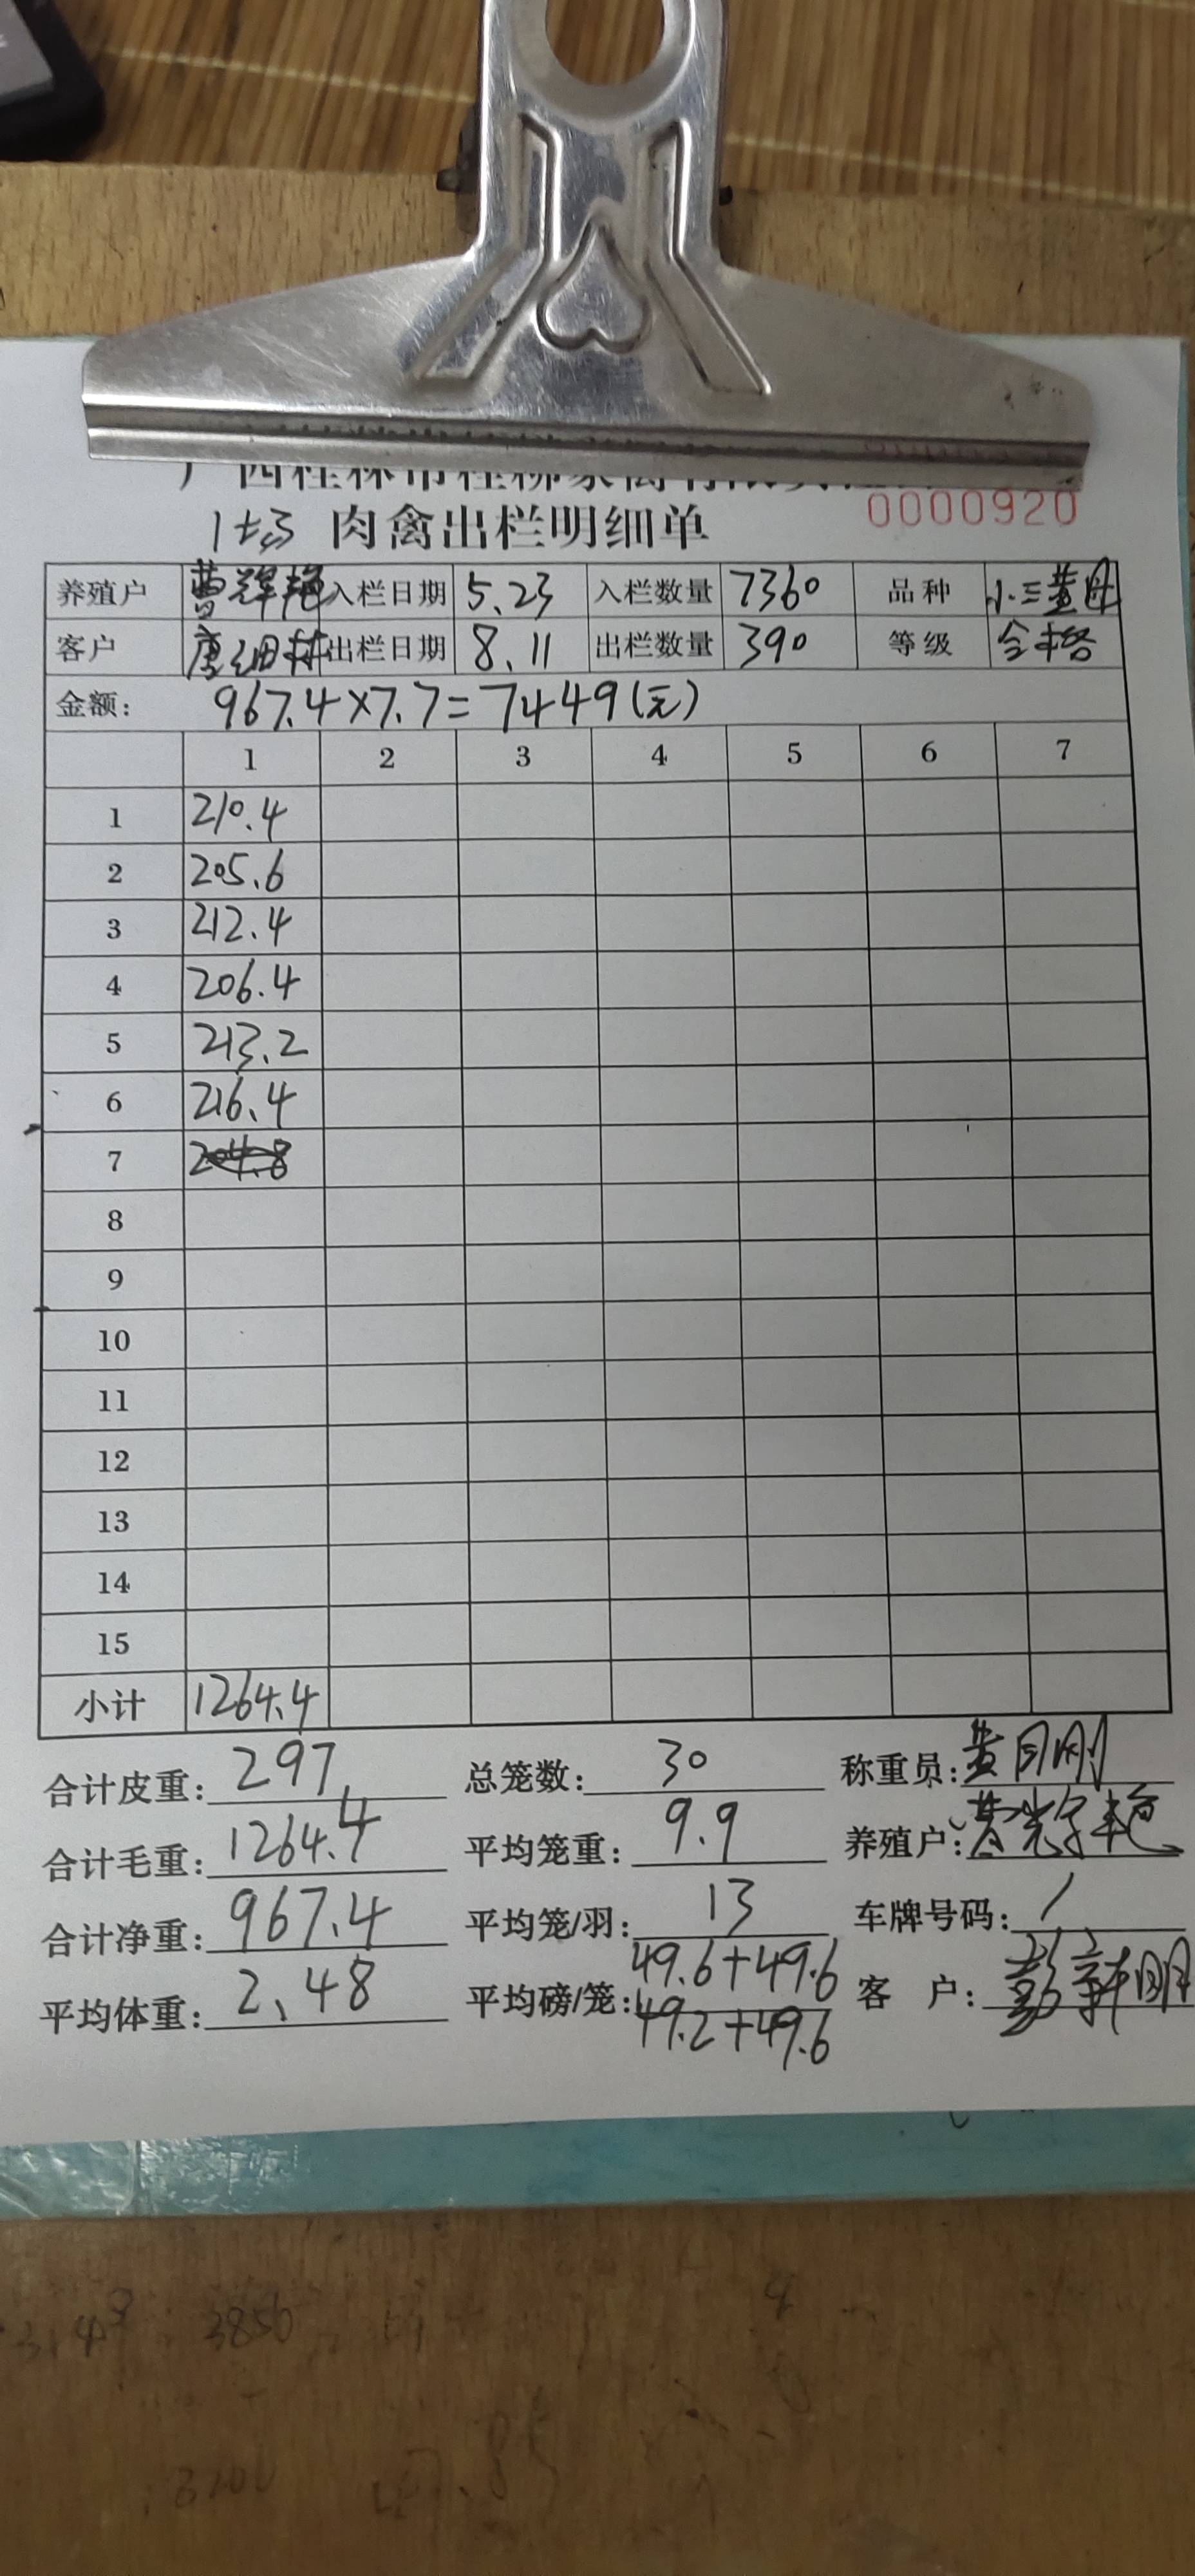 0000920
肉禽出栏明细单
养殖户 入栏日期 5.23 入栏数量 7360 品种 小三黄母
客户 唐细林 出栏日期 8.11 出栏数量 390 等级 合格
金额: 967.4×7.7=7449(元)
1 2 3 4 5 6 7
1 210.4
2 205.6
3 212.4
4 206.4
5 213.2
6 216.4
7
8
9
10
11
12
13
14
15
小计 1264.4
合计皮重: 297 总笼数: 30 称重员:
合计毛重: 1264.4 平均笼重: 9.9 养殖户:
合计净重: 967.4 平均笼/羽: 13 车牌号码: /
平均体重: 2.48 平均磅/笼: 49.6+49.6 客户:
49.2+49.6